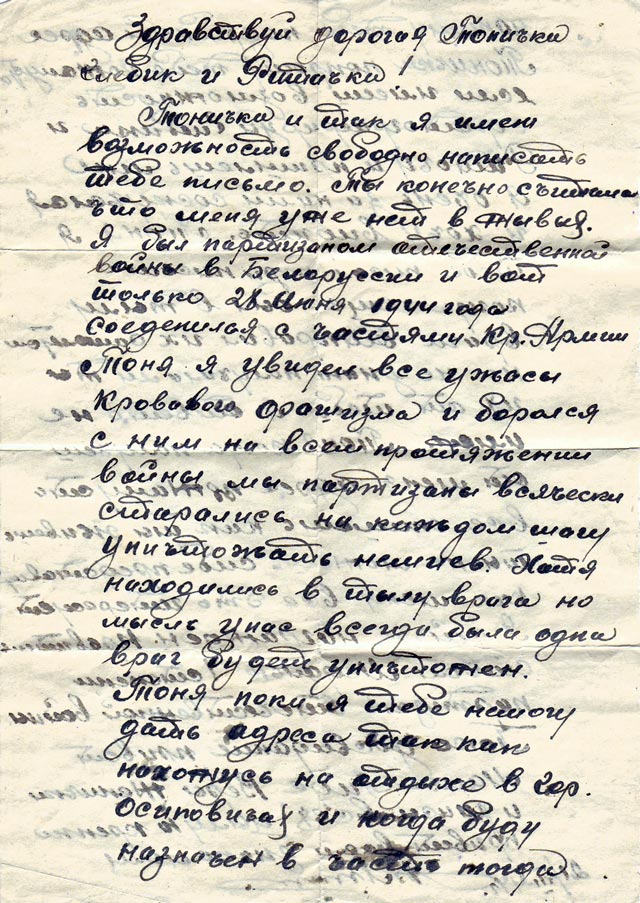 Здравствуй дорогая Тоничка
Славик и Риточка!
Тоничка и так я имею
возможность свободно написать
тебе письмо. Ты конечно считала
что меня уже нет в живых.
Я был партизаном отечественной
войны в Белоруссии и вот
только 28 Июня 1944 года
соеденился с частями Кр. Армии
Тоня я увидел все ужасы
кровавого фашизма и боролся
с ним на всем протяжении
войны мы партизаны всячески
старались на каждом шагу
уничтожать немцев. Хотя
находились в тылу врага но
мысль у нас всегда была одна
враг будет уничтожен.
Тоня пока я тебе немогу
дать адреса так как
нахожусь на отдыхе в гор.
Осиповичах и когда буду
назначен в часть тогда